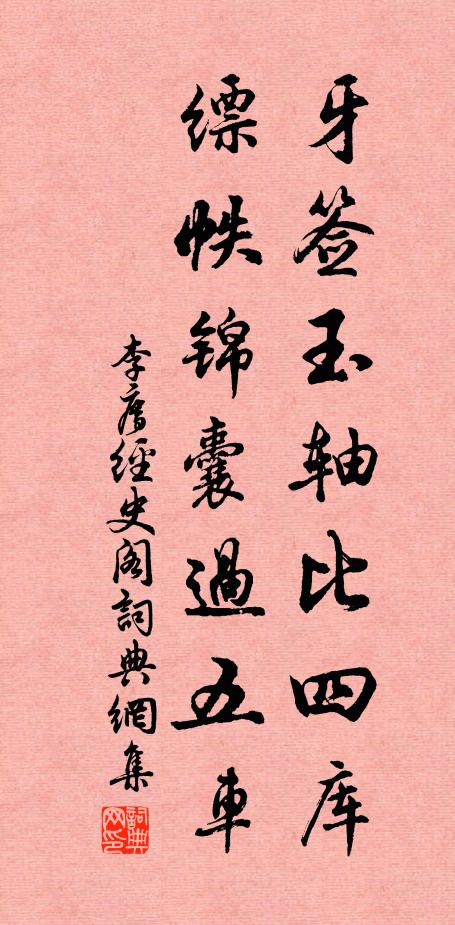 牙签玉轴比四库
缥帙锦囊過五車
李廌經史阁詞典網集
詞典网印